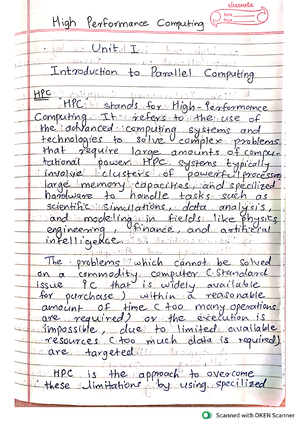 classmate
Date
Page
High Performance Computing
Unit I
Introduction to Parallel Computing
HPC
HPC stands for High-Performance
Computing. It refers to the use of
the advanced computing systems and
technologies to solve complex problems
that require large amounts of compu-
tational power. HPC systems typically
involve clusters of powerful processors
large memory capacities, and specilized
hardware to handle tasks such as
scientific simulations, data analysis,
and modeling in fields like physics
engineering, finance, and artificial
intelligence.
The problems which cannot be solved
on a commodity computer (-Standard
issue PC that is widely available
for purchase) within a reasonable
amount of time (too many operations
are required) or the execution is
impossible, due to limited available
resources (too much data is required)
are targeted.
HPC is the approach to overcome
these limitations by using specilized
Scanned with OKEN Scanner